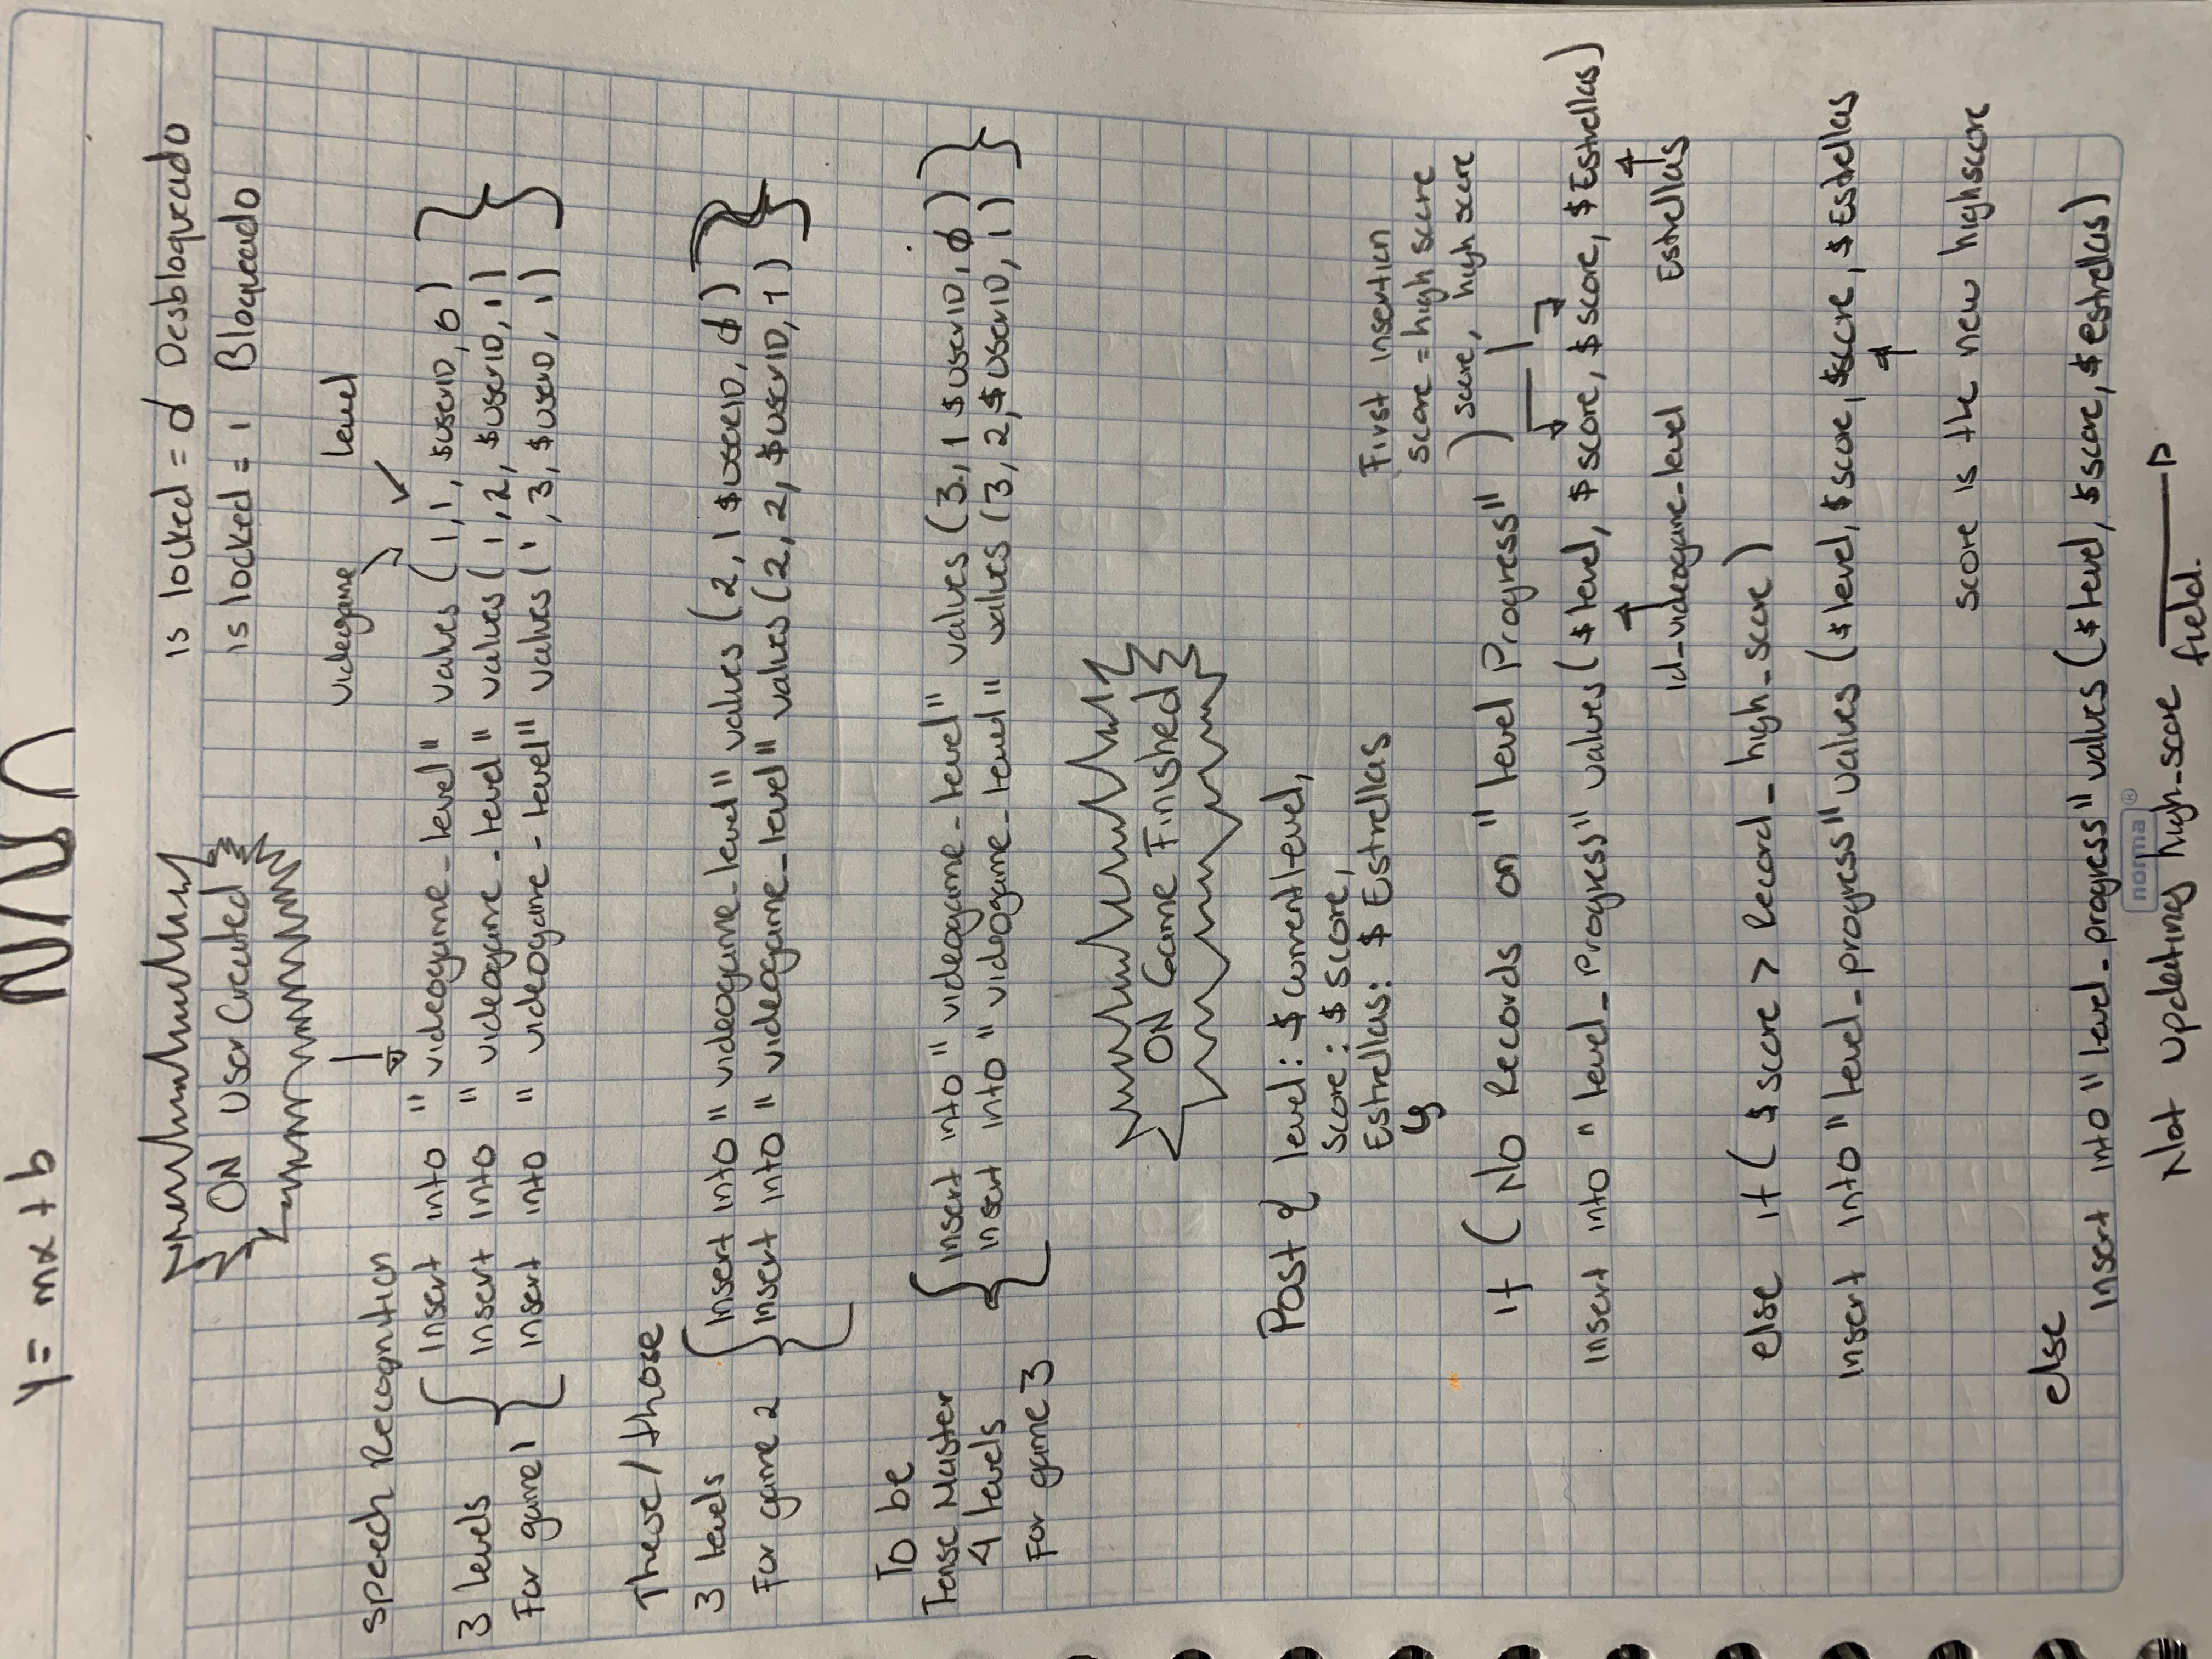 y = mx + b
ON User Created
is locked = 0 Desbloqueado
is locked = 1 Bloqueado
videogame level
Speech Recognition
3 levels
For game 1
Insert into "videogame_level" values (1,1, $userID, 0)
Insert into "videogame-level" values (1,2, $userID, 1)
Insert into "videogame-level" values (1,3, $userID, 1)
These/those
3 levels
For game 2
Insert into "videogame_level" values (2,1 $userID, 0)
Insert into "videogame_level" values (2,2, $userID, 1)
To be
Tense Master
4 levels
For game 3
Insert into "videogame_level" values (3,1 $userID, 0)
Insert into "videogame_level" values (3, 2,$userID, 1)
ON Game Finished
Post { level: $currentlevel,
score: $score,
Estrellas: $Estrellas
First insertion
score = high score
score, high score
if (No Records on "level Progress")
Insert into "level_Progress" values ($level, $score, $score, $Estrellas)
id_videogame_level Estrellas
else if ($score > Record_high_score)
Insert into "level_progress" values ($level, $score, $score, $Estrellas
score is the new highscore
else
Insert into "level_progress" values ($level, $score, $estrellas)
norma®
Not updating high_score field.